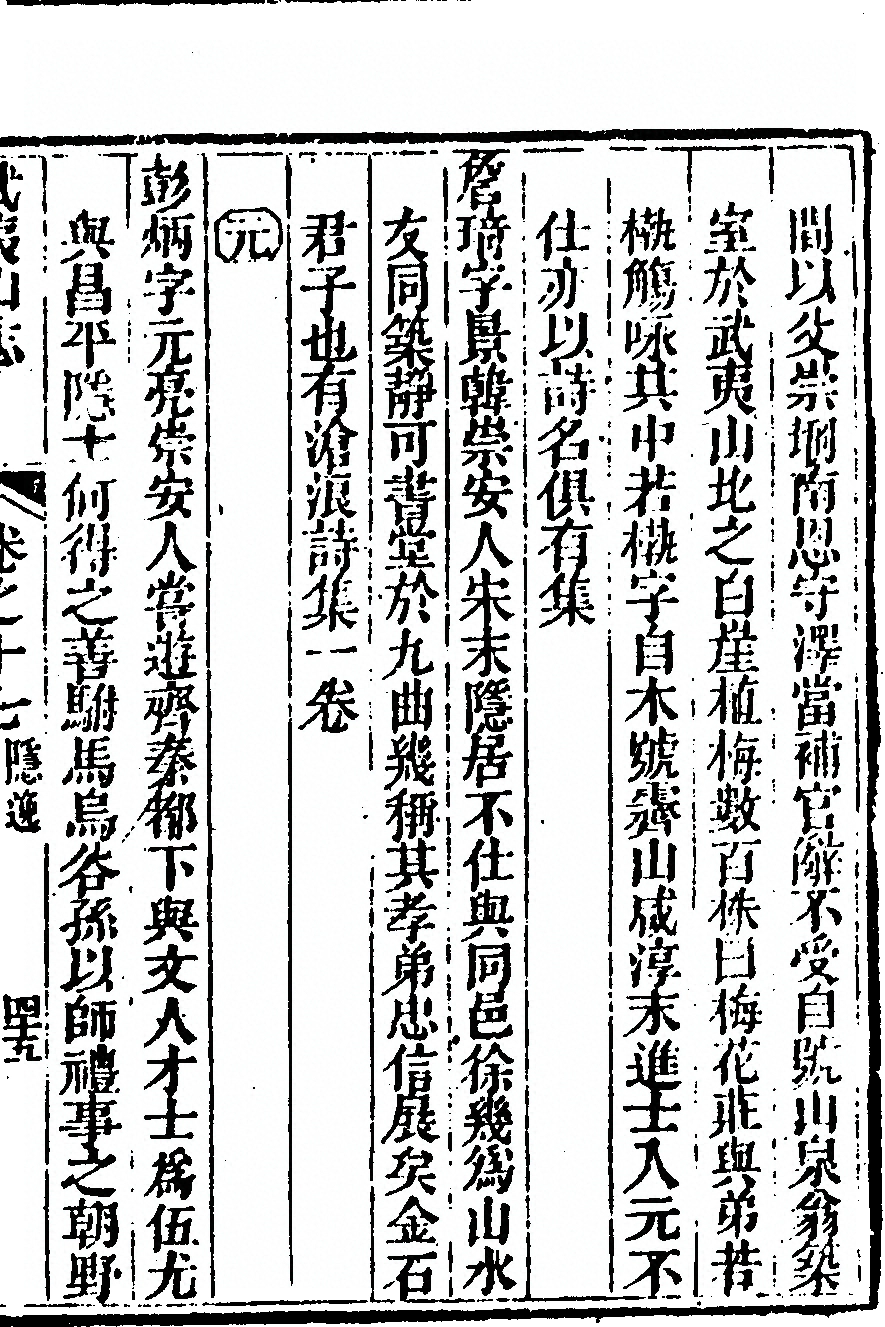 間以父崇堈南恩守澤當補官辭不受自號山泉翁築
室於武夷山北之白崖植梅數百株曰梅花莊與弟若
槸觴咏其中若槸字自木號齊山咸淳末進士入元不
仕亦以詩名俱有集
詹琦字景韓崇安人宋末隱居不仕與同邑徐幾爲山水
友同築靜可書堂於九曲幾稱其孝弟忠信展矣金石
君子也有滄浪詩集一卷
元
彭炳字元亮崇安人嘗遊齊秦都下與文人才士爲伍尤
與昌平隱士何得之善駙馬烏谷孫以師禮事之朝野
武夷山志 卷之十七 隱逸 四十九